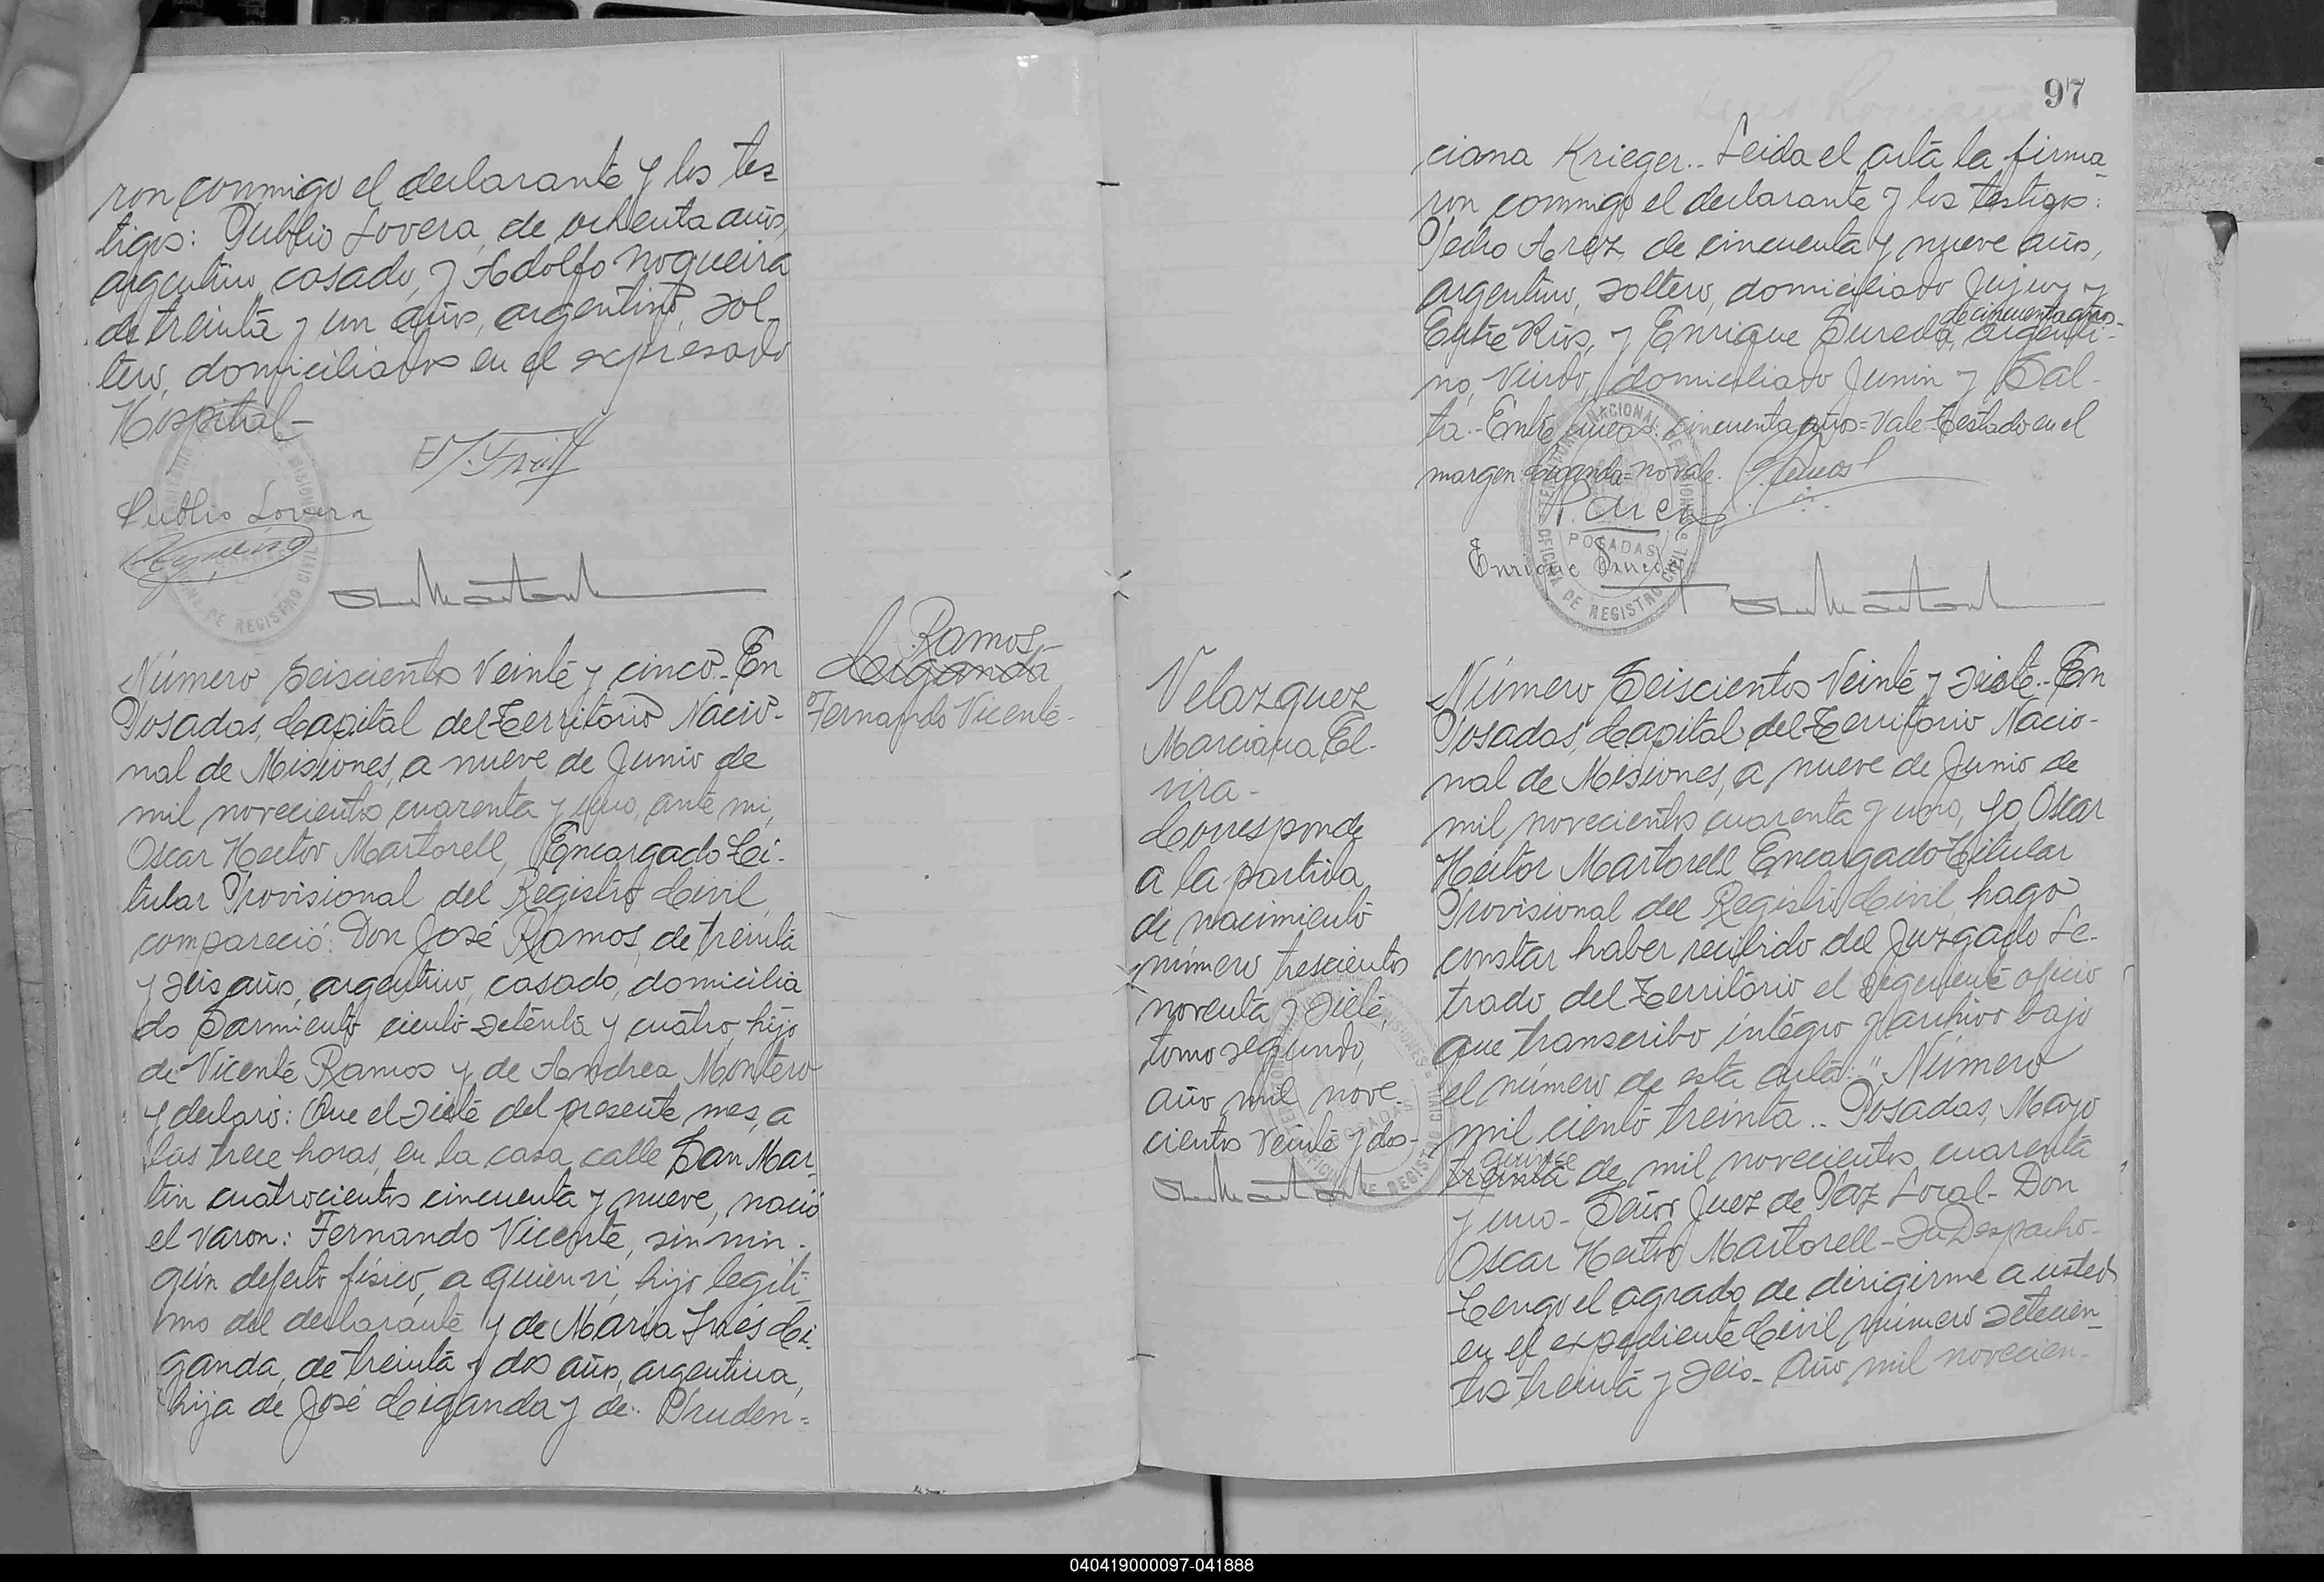 ron conmigo el declarante y los tes
tigos: Publio Lovera, de ochenta años,
argentino, casado, y Adolfo Nogueira
de treinta y un años, argentino, sol-
tero, domiciliados en el expresado
Hospital-
Publio Lovera
Ramos,
Ciganda
Fernando Vicente-
Número Seiscientos Veinte y cinco.- En
Posadas, Capital del Territorio Nacio-
nal de Misiones, a nueve de Junio de
mil novecientos cuarenta y uno, ante mi,
Oscar Hector Martorell, Encargado Ti-
tular Provisional del Registro Civil,
compareció: Don José Ramos, de treinta
y seis años, argentino, casado, domicilia
do Sarmiento ciento setenta y cuatro, hijo
de Vicente Ramos y de Andrea Montero
y declaró: Que el siete del presente mes, a
las trece horas, en la casa calle San Mar-
tin cuatrocientos cincuenta y nueve, nació
el varon: Fernando Vicente, sin nin-
gún defecto físico, a quien ví, hijo legíti-
mo del declarante y de María Inés Ci-
ganda, de treinta y dos años, argentina,
hija de José Ciganda y de Pruden-
97
ciana Krieger.. Leida el acta la firma-
ron conmigo el declarante y los testigos:
Pedro Arez, de cincuenta y nueve años,
argentino, soltero, domiciliado Jujuy y
de cincuenta años-
Entre Rios, y Enrique Sureda, argenti-
no, Viudo, domiciliado Junin y Sal-
ta.- Entre lineas: cincuenta años=Vale-Testado en el
margen Ciganda=no vale.
P. Arez
Enrique Sureda
POSADAS
Velazquez
Marciana El-
vira-
Corresponde
a la partida
de nacimiento
número trescientos
noventa y siete,
tomo segundo,
año mil nove-
cientos veinte y dos-
Número Seiscientos Veinte y siete.- En
Posadas, Capital del Territorio Nacio-
nal de Misiones, a nueve de Junio de
mil novecientos cuarenta y uno, yo, Oscar
Héctor Martorell Encargado Titular
Provisional del Registro Civil, hago
constar haber recibido del Juzgado Le-
trado del Territorio el siguiente oficio
que transcribo íntegro y archivo bajo
el número de esta acta: "Número
mil ciento treinta.. Posadas, Mayo
quince
treinta de mil novecientos cuarenta
y uno- Señor Juez de Paz Local- Don
Oscar Hector Martorell- Su Despacho-
Tengo el agrado de dirigirme a usted
en el expediente Civil número setecien-
tos treinta y seis- Año mil novecien-
040419000097-041888